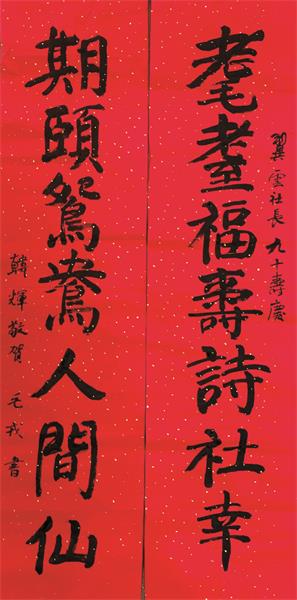 翼雲社長九十壽慶
耄耋福壽詩社幸
期頤鴛鴦人間仙
韓輝敬賀 毛戎書